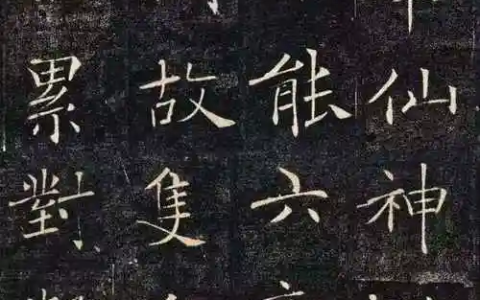 仙神
能六
故隻
累對